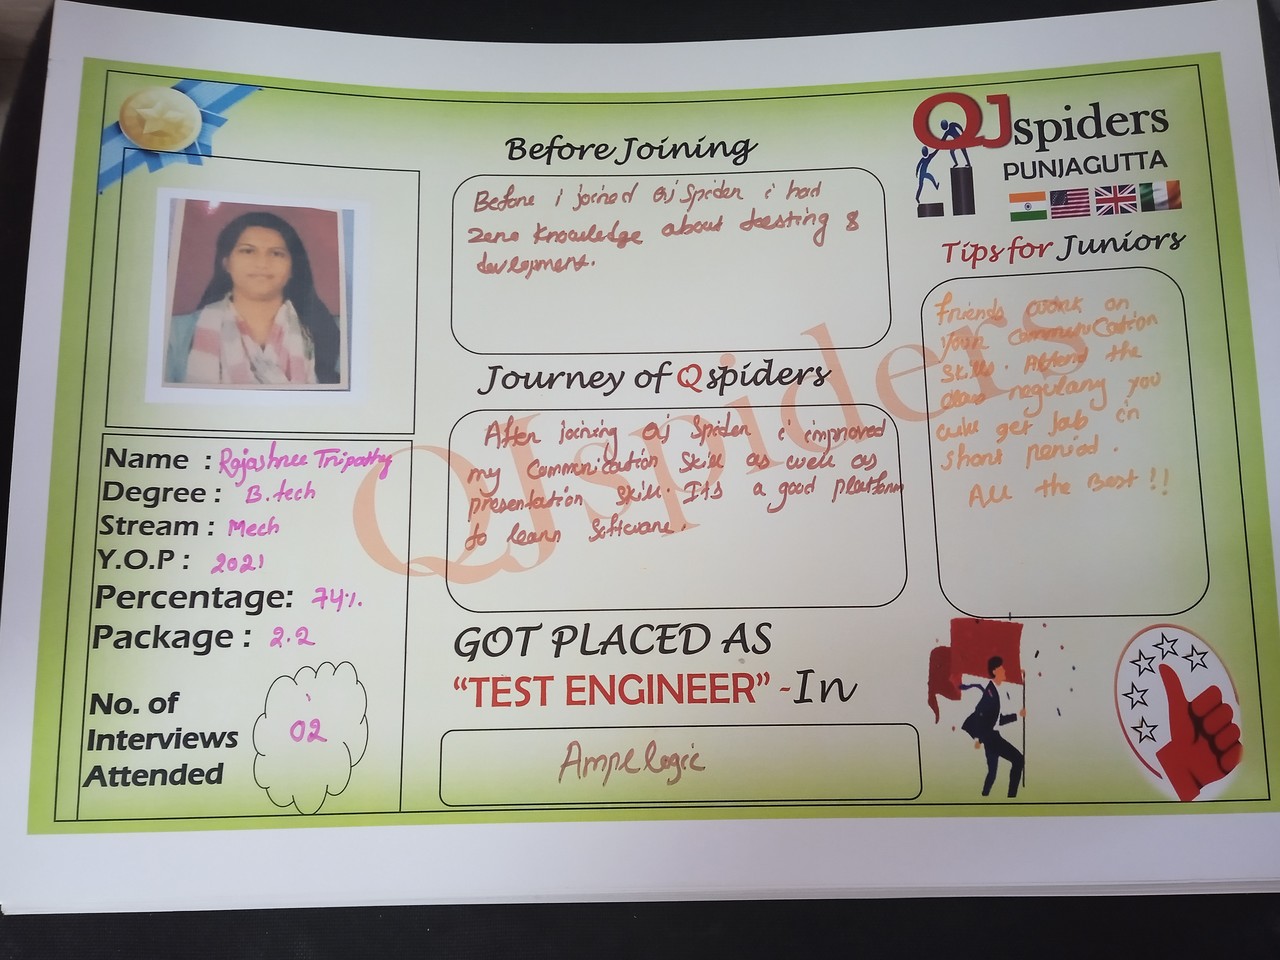 QJspiders
PUNJAGUTTA
Before Joining
Before i joined QJ Spider i had
zero knowledge about teesting &
development.
Journey of Qspiders
After joining QJ Spider i improved
my Communication Skill as well as
presentation skill. It's a good platform
to learn Software.
Tips for Juniors
Friends work on
your communication
Skills. Attend the
class regularly you
will get Job in
short period.
All the Best !!
Name : Rajashree Tripathy
Degree : B.tech
Stream : Mech
Y.O.P : 2021
Percentage: 74%.
Package : 2.2
No. of
Interviews
Attended
02
GOT PLACED AS
“TEST ENGINEER” -In
Ampelogic
QJspiders